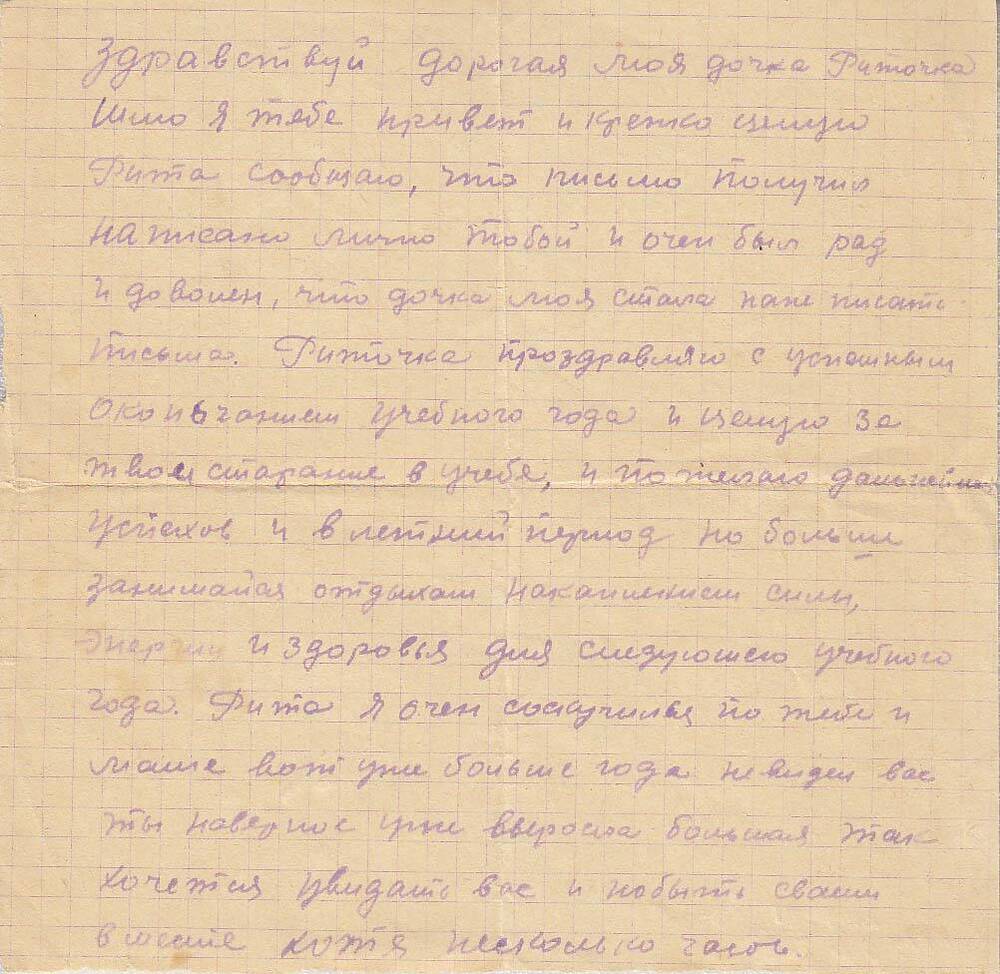 Здравствуй дорогая моя дочка Риточка
Шлю я тебе привет и крепко целую
Рита сообщаю, что письмо получил
написано лично тобой и очен был рад
и доволен, что дочка моя стала папе писать
письма. Риточка проздравляю с успешным
оконьчанием учебного года и целую за
твои старание в учебе, и пожелаю дальнейш
успехов и в летний период по больши
занимайся отдыхам накаплением силы,
Энергии и здоровья для следующего учебного
года. Рита я очен соскучился по тебе и
маме вот уже больше года невидел вас
ты наверное уже выросла большая так
хочетя увидать вас и побыть свами
вместе хотя несколько часов.